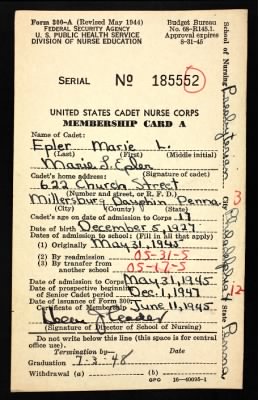 Form 300-A (Revised May 1944)
FEDERAL SECURITY AGENCY
U. S. PUBLIC HEALTH SERVICE
DIVISION OF NURSE EDUCATION
Budget Bureau
No. 68-R145.1.
Approval expires
8-31-45
SERIAL No 185552
UNITED STATES CADET NURSE CORPS
MEMBERSHIP CARD A
Name of Cadet:
Epler Marie L.
(Last) (First) (Middle initial)
Marie L. Epler
(Signature of cadet)
Cadet's home address:
622 Church Street
(Number and street, or R. F. D.)
Millersburg Dauphin Penna.
(City) (County) (State)
Cadet's age on date of admission to Corps 17
Date of birth December 5, 1927
Dates of admission to school: (Fill in all that apply)
(1) Originally May 31, 1945
(2) By readmission 05-31-5
(3) By transfer from
another school 05-17-5
Date of admission to Corps May 31, 1945
Date of prospective beginning
of Senior Cadet period Dec. 1, 1947
Date of issuance of Form 300,
Certificate of Membership June 11, 1945
(Signature of Director of School of Nursing)
Do not write below this line (this space for central office use).
Termination by— Date
Graduation 7-3-48
Withdrawal (a) (b)
GPO 16-40095-1
School of Nursing Presbyterian
City Philadelphia State Penna
3
12